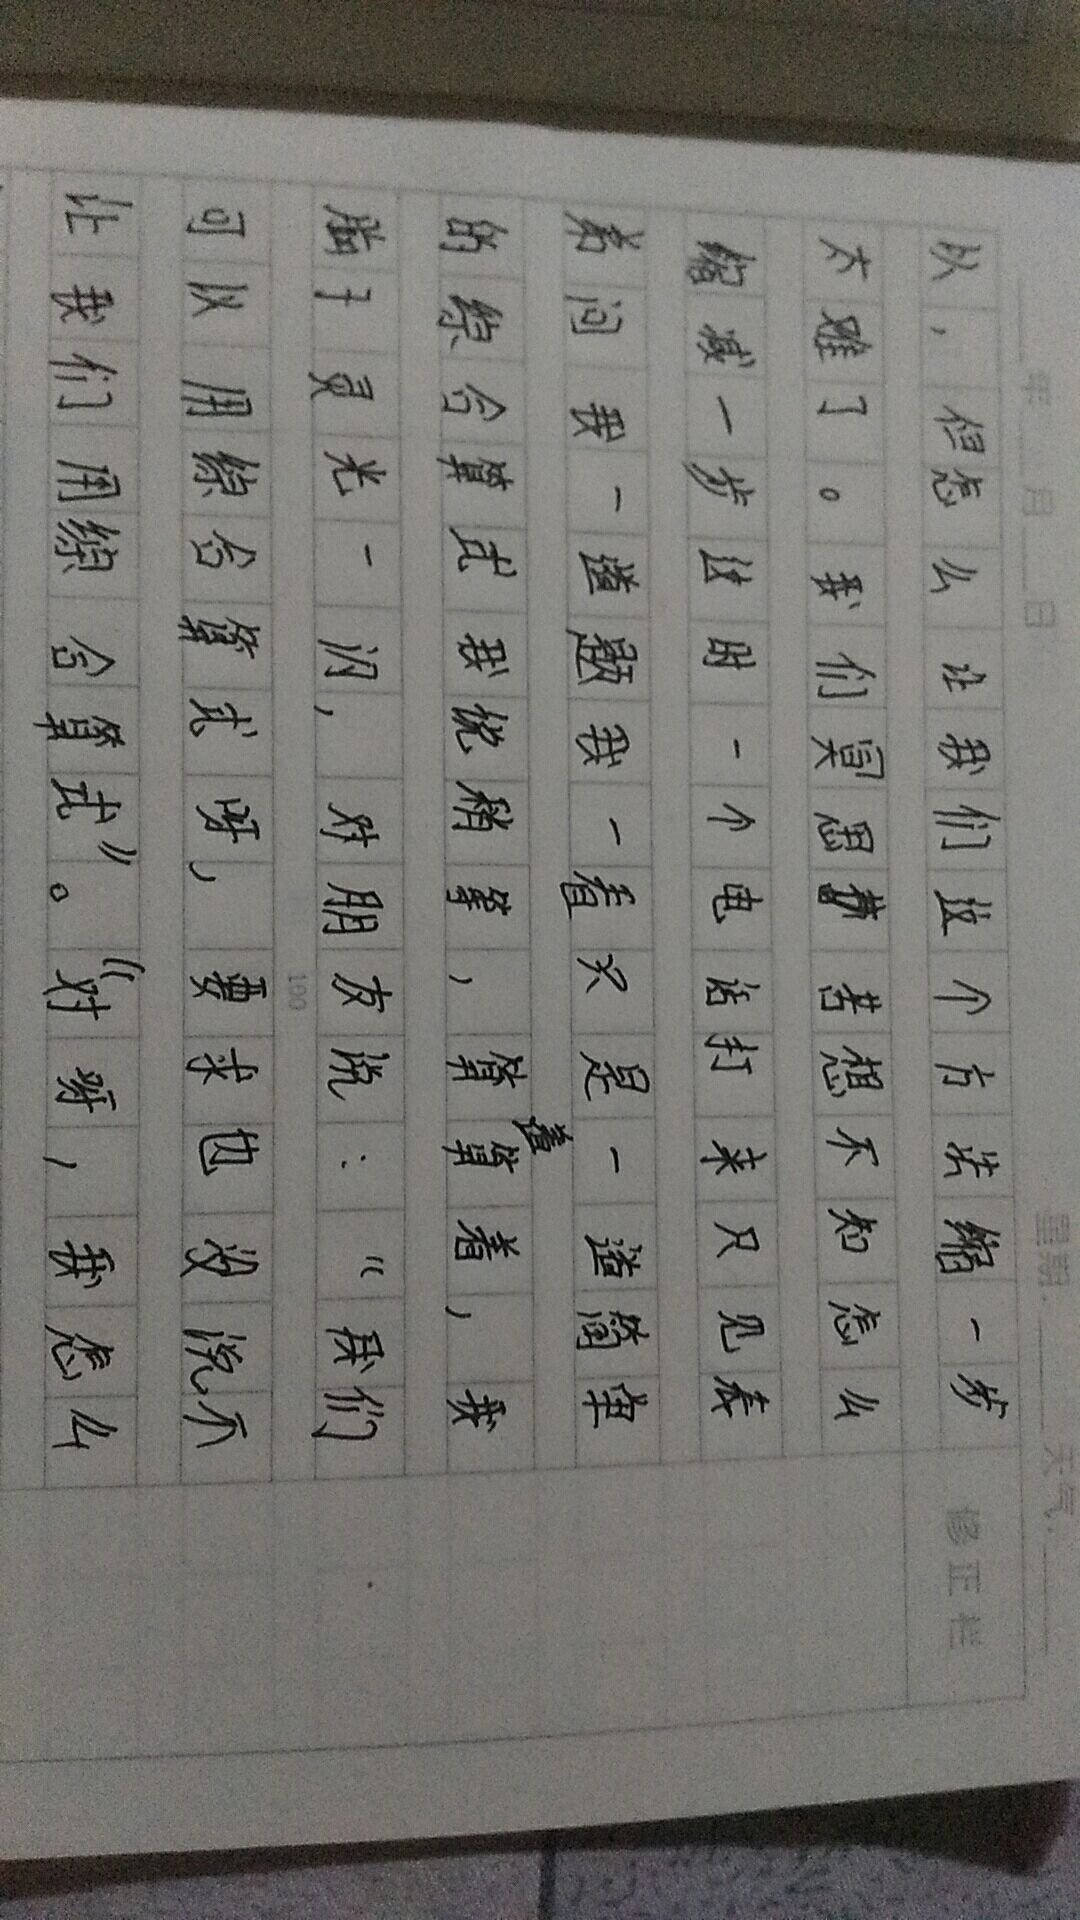 年 月 日 星期: 天气:
以，但怎么让我们这个方法缩一步 修正栏
太难了。我们冥思苦想不知怎么
缩减一步这时一个电话打来只见表
弟问我一道题我一看只是一道简单
的综合算式我说稍等，算算着，我
脑子灵光一闪，对朋友说：“我们
100
可以用综合算式呀，要求也没说不
让我们用综合算式”。“对呀，我怎么